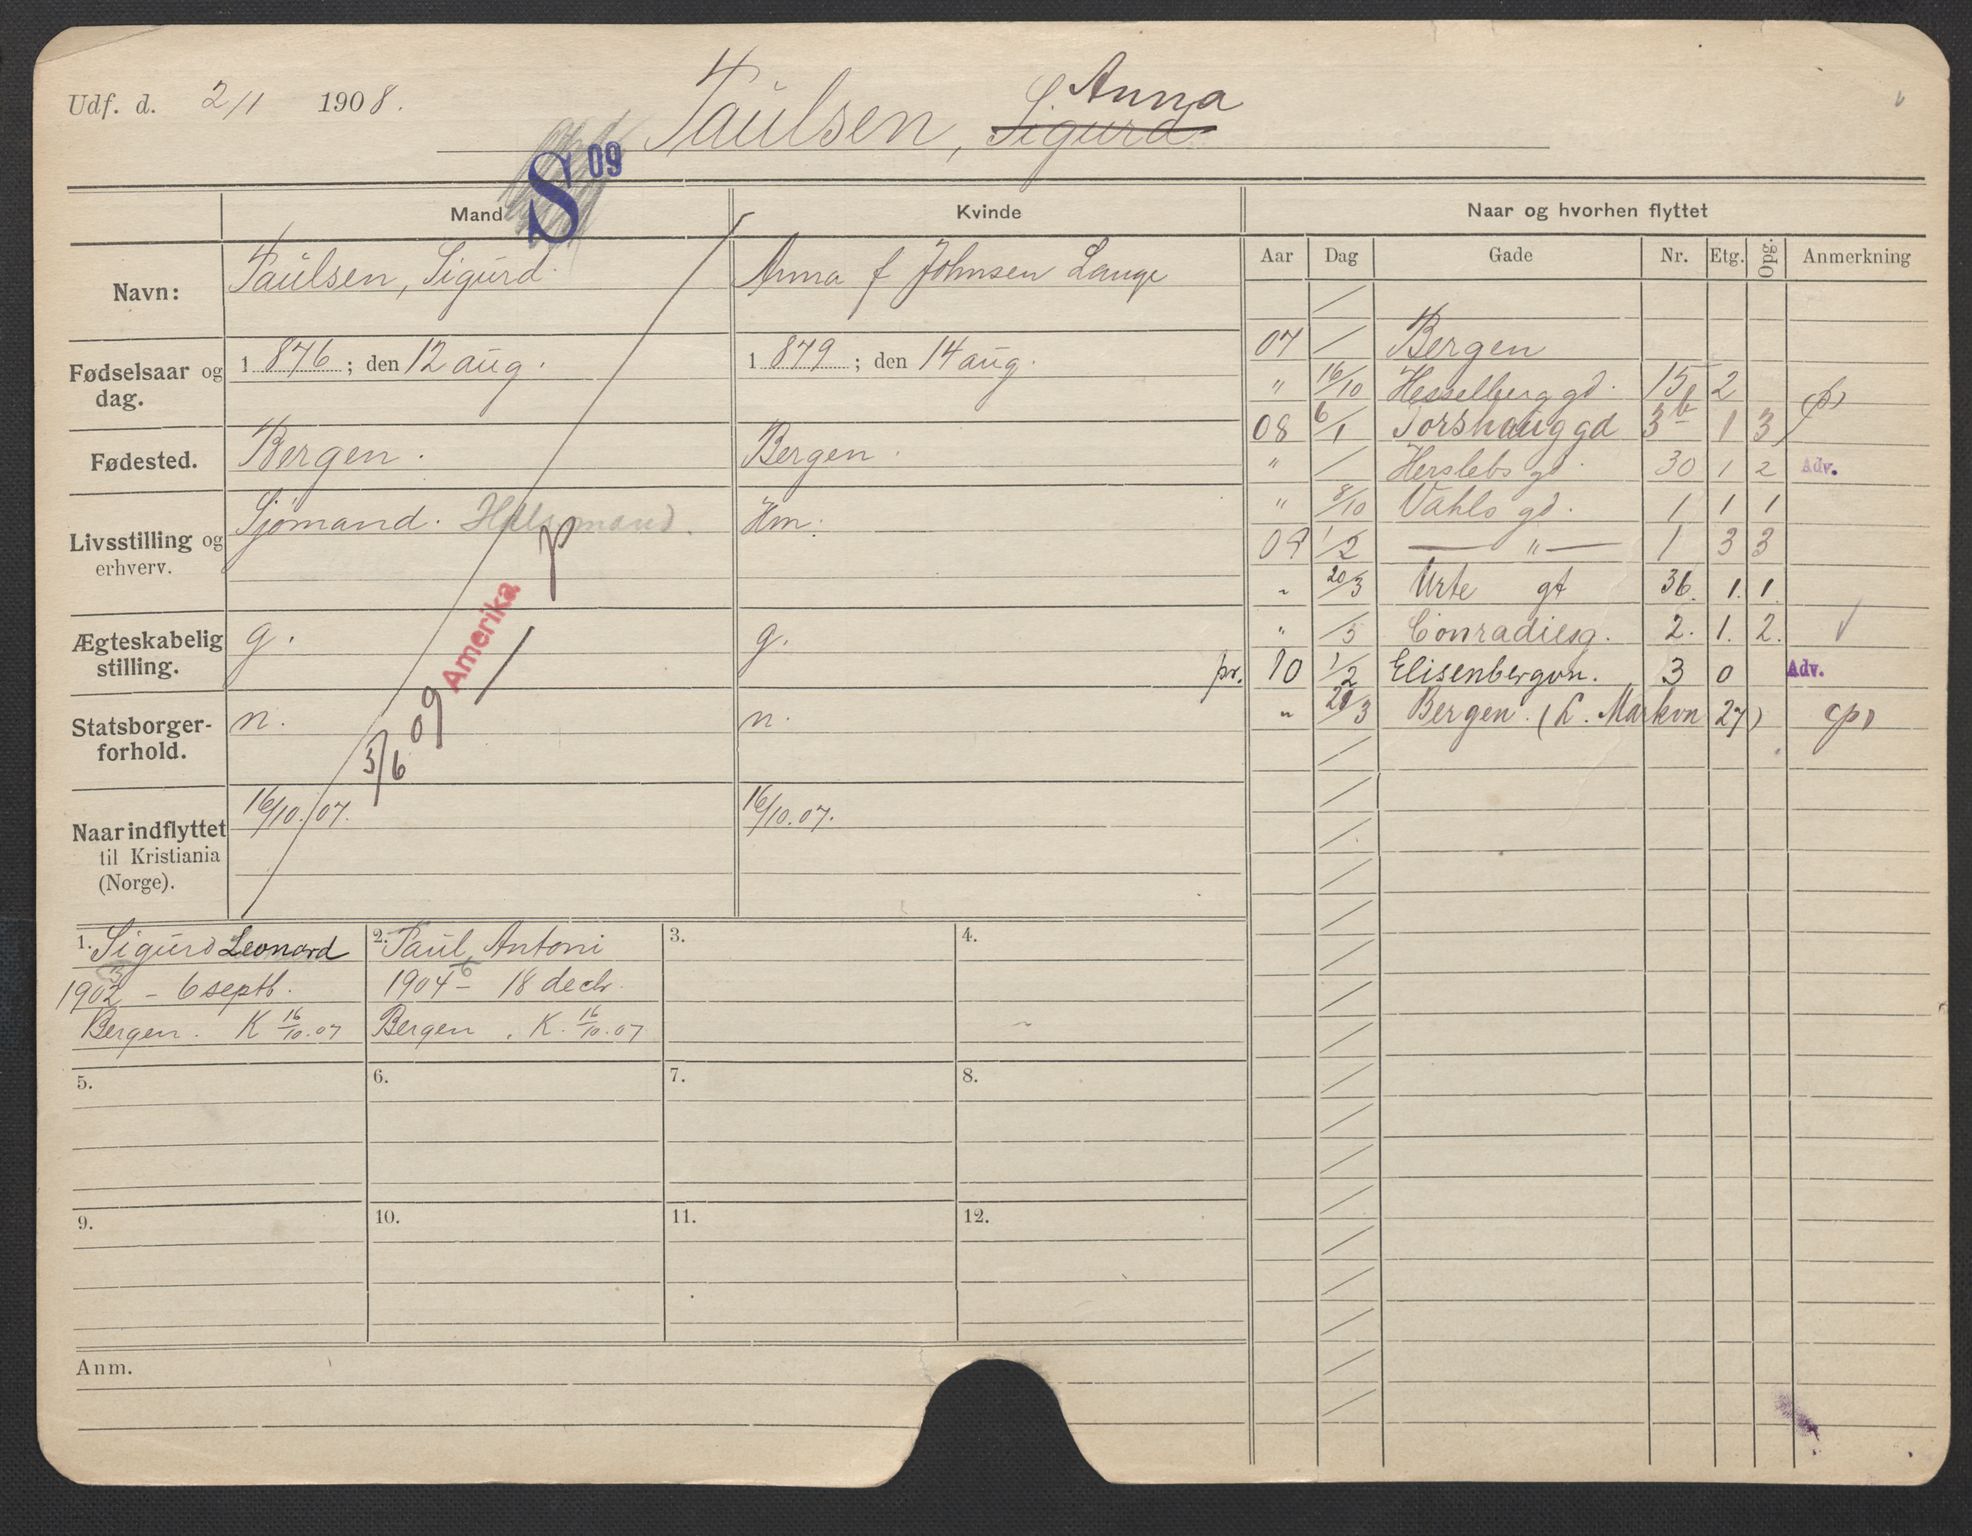 Udf. d. 2/1 1908.
Paulsen, Sigurd Anna
S 09
Mand
Kvinde
Naar og hvorhen flyttet
Aar Dag Gade Nr. Etg. Opg. Anmerkning
Navn: Paulsen, Sigurd. Anna f Johnsen Lange
Fødselsaar og dag. 1876; den 12 aug. 1879; den 14 aug.
Fødested. Bergen. Bergen.
Livsstilling og erhverv. Sjømand. Hm.
Amerika
Ægteskabelig stilling. g. g.
3/6 09
Statsborgerforhold. n. n.
Naar indflyttet til Kristiania (Norge). 16/10.07. 16/10.07.
07 / Bergen
" 16/10 Hesselberg gd. 15 2
08 6/1 Torshaug gd 3b 1 3
" / Herslebs gd 30 1 2 Adv.
" 8/10 Vahls gd. 1 1 1
09 1/2 — " — 1 3 3
" 20/3 Urte gt 36. 1. 1.
" /5 Conradiesg. 2. 1. 2. √
pr. 10 1/2 Elisenbergvn. 3 0 Adv.
" 21/3 Bergen. (L. Markvn 27)
1. Sigurd Leonard
1902 3 – 6 septb.
Bergen. K 16/10.07
2. Paul Antoni
1904 6 – 18 decbr.
Bergen. K. 16/10.07
3.
4.
5.
6.
7.
8.
9.
10.
11.
12.
Anm.